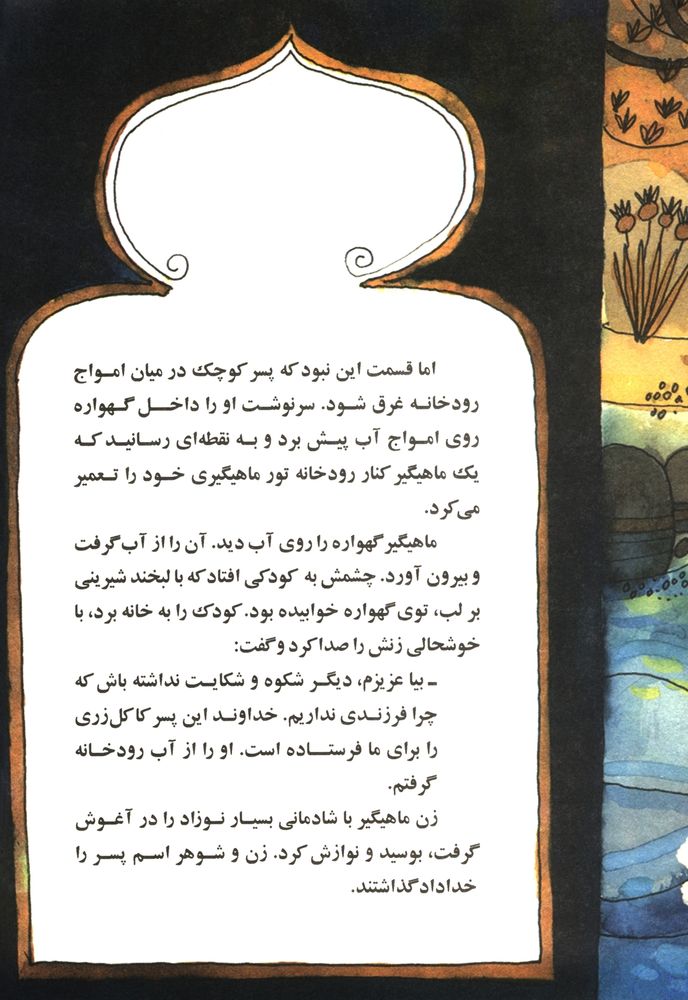 اما قسمت این نبود که پسر کوچک در میان امواج
رودخانه غرق شود. سرنوشت او را داخل گهواره
روی امواج آب پیش برد و به نقطه‌ای رسانید که
یک ماهیگیر کنار رودخانه تور ماهیگیری خود را تعمیر
می‌کرد.
ماهیگیر گهواره را روی آب دید. آن را از آب گرفت
و بیرون آورد. چشمش به کودکی افتاد که با لبخند شیرینی
بر لب، توی گهواره خوابیده بود. کودک را به خانه برد، با
خوشحالی زنش را صدا کرد و گفت:
ـ بیا عزیزم، دیگر شکوه و شکایت نداشته باش که
چرا فرزندی نداریم. خداوند این پسر کاکل‌زری
را برای ما فرستاده است. او را از آب رودخانه
گرفتم.
زن ماهیگیر با شادمانی بسیار نوزاد را در آغوش
گرفت، بوسید و نوازش کرد. زن و شوهر اسم پسر را
خداداد گذاشتند.